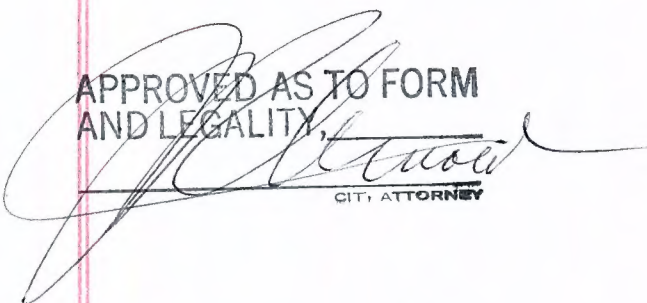 APPROVED AS TO FORM
AND LEGALITY,
CIT, ATTORNEY